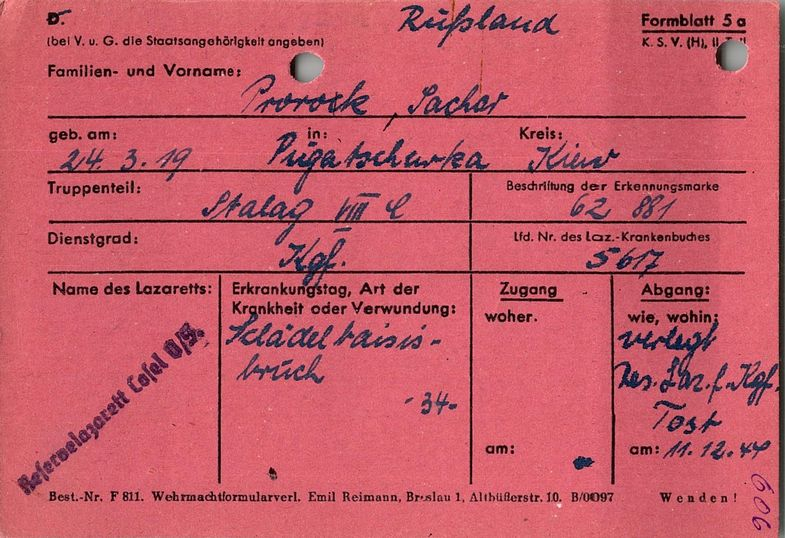 D. Rußland Formblatt 5 a
(bei V. u. G. die Staatsangehörigkeit angeben) K. S. V. (H), II. Teil
Familien- und Vorname:
Prorock Sachar
geb. am: in: Kreis:
24. 3. 19 Pugatschewka Kiew
Truppenteil: Beschriftung der Erkennungsmarke
Stalag VIII C 62 881
Dienstgrad: Lfd. Nr. des Laz.-Krankenbuches
Kgf. 5617
Name des Lazaretts: Erkrankungstag, Art der Zugang Abgang:
Krankheit oder Verwundung: woher. wie, wohin:
Reservelazarett Cosel O/S.
Schädelbasis- verlegt
bruch Res. Laz. f. Kgf.
- 34 - Tost
am: am: 11. 12. 44
Best.-Nr. F 811. Wehrmachtformularverl. Emil Reimann, Breslau 1, Altbüßerstr. 10. B/0097 Wenden!
606